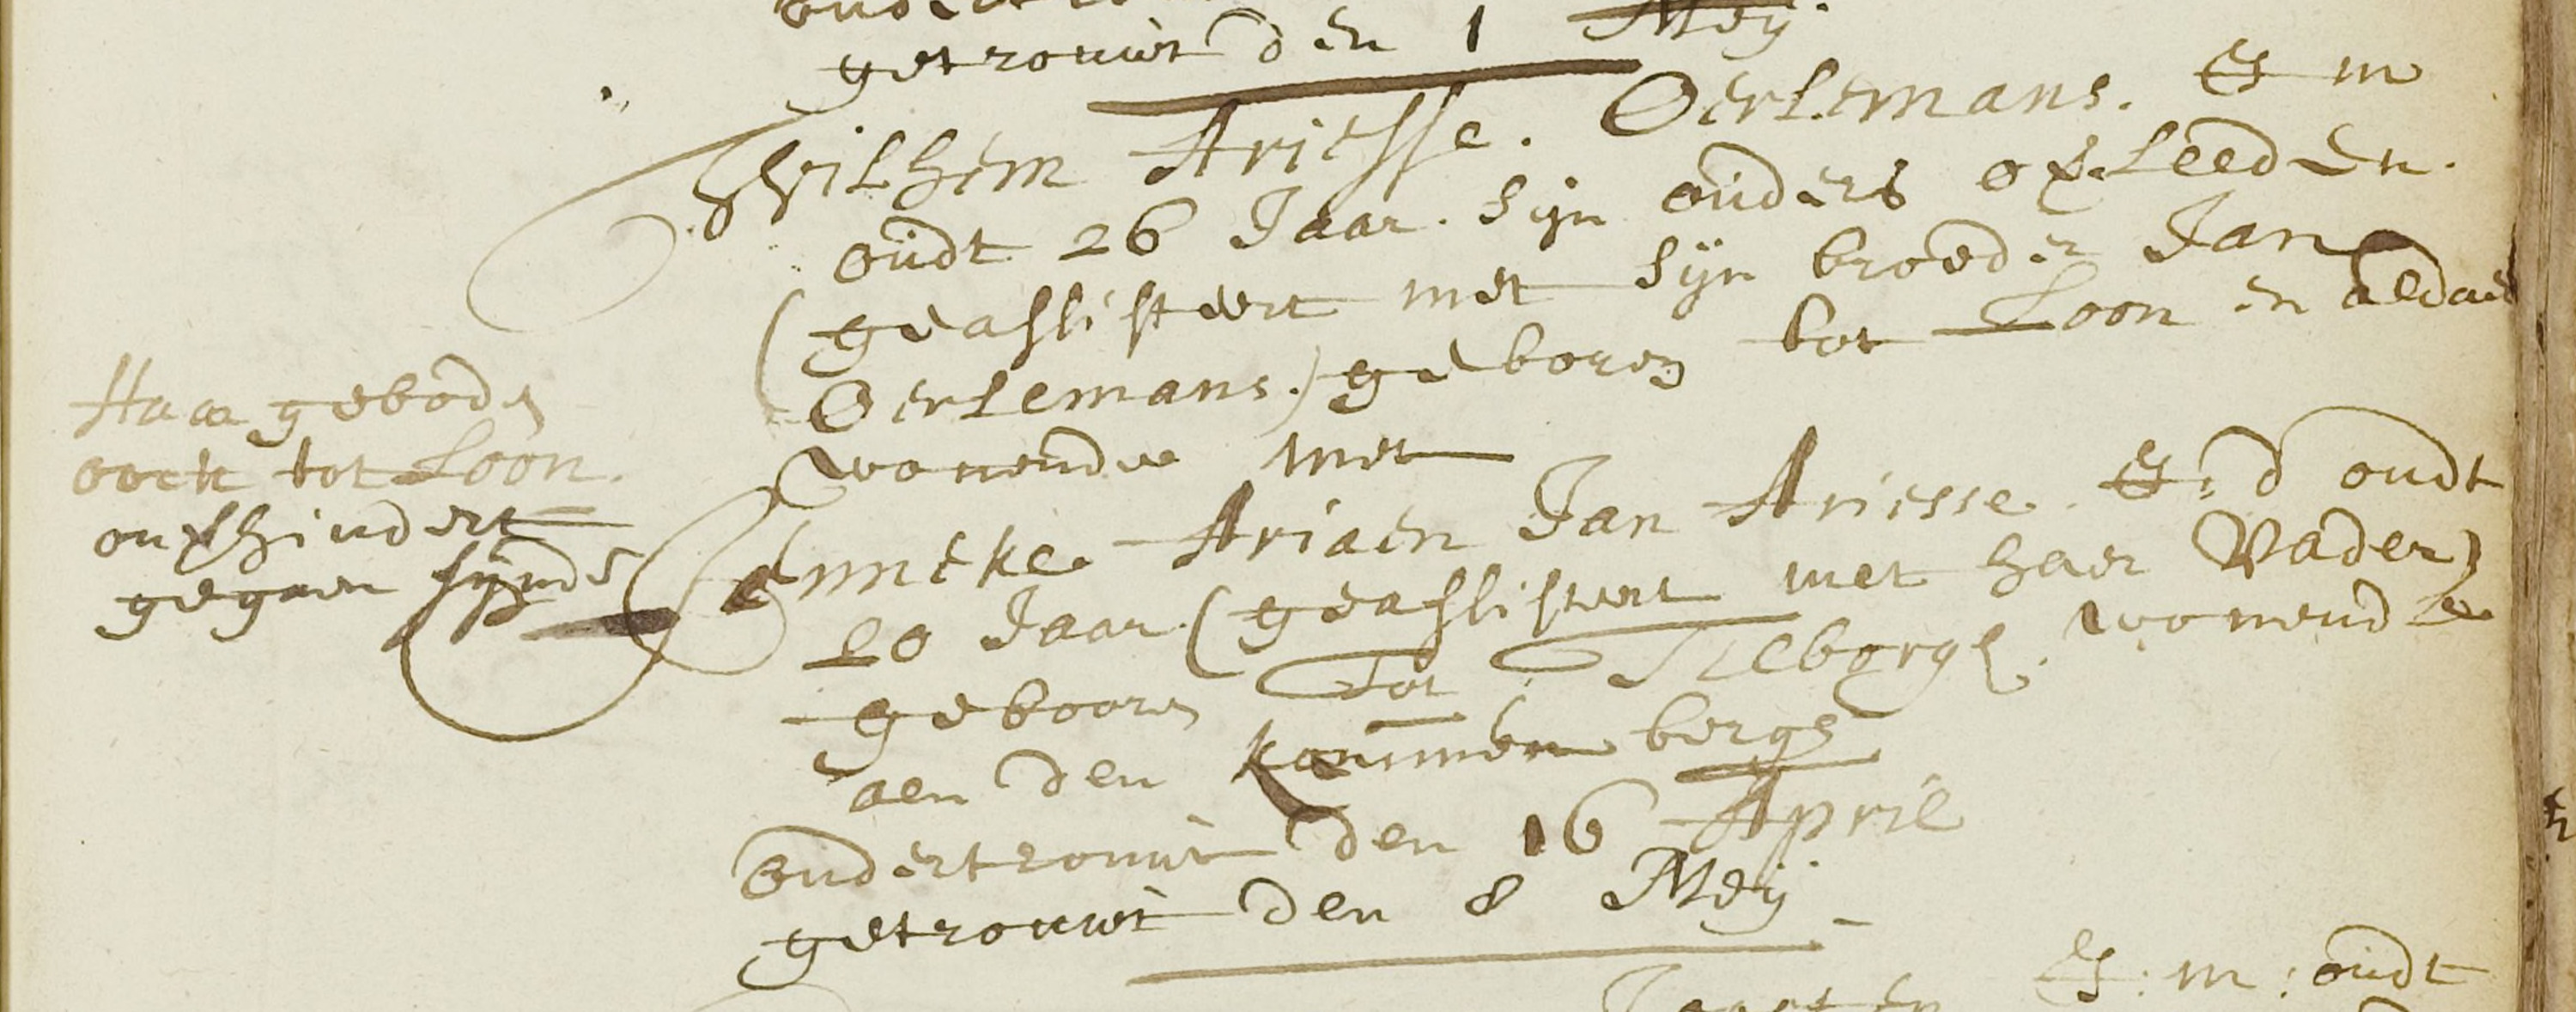 getrouwt den 1 Meij.
Wilhem Ariesse. Oerlemans. J m
oudt 26 Jaar. sijn ouders overleeden.
(geassisteert met sijn broeder Jan
Oerlemans.) geboren tot Loon en aldaer
woonende met
Haar geboden
oock tot Loon.
onverhindert
gegaen sijnde
Enneke Ariaen Jan Ariesse. J: d oudt
20 Jaar. (geassisteert met haer Vader)
gebooren tot Tilborgh. wonende
aen den bergh
ondertrouwt den 16 April
getrouwt den 8 Meij
J: m: oudt